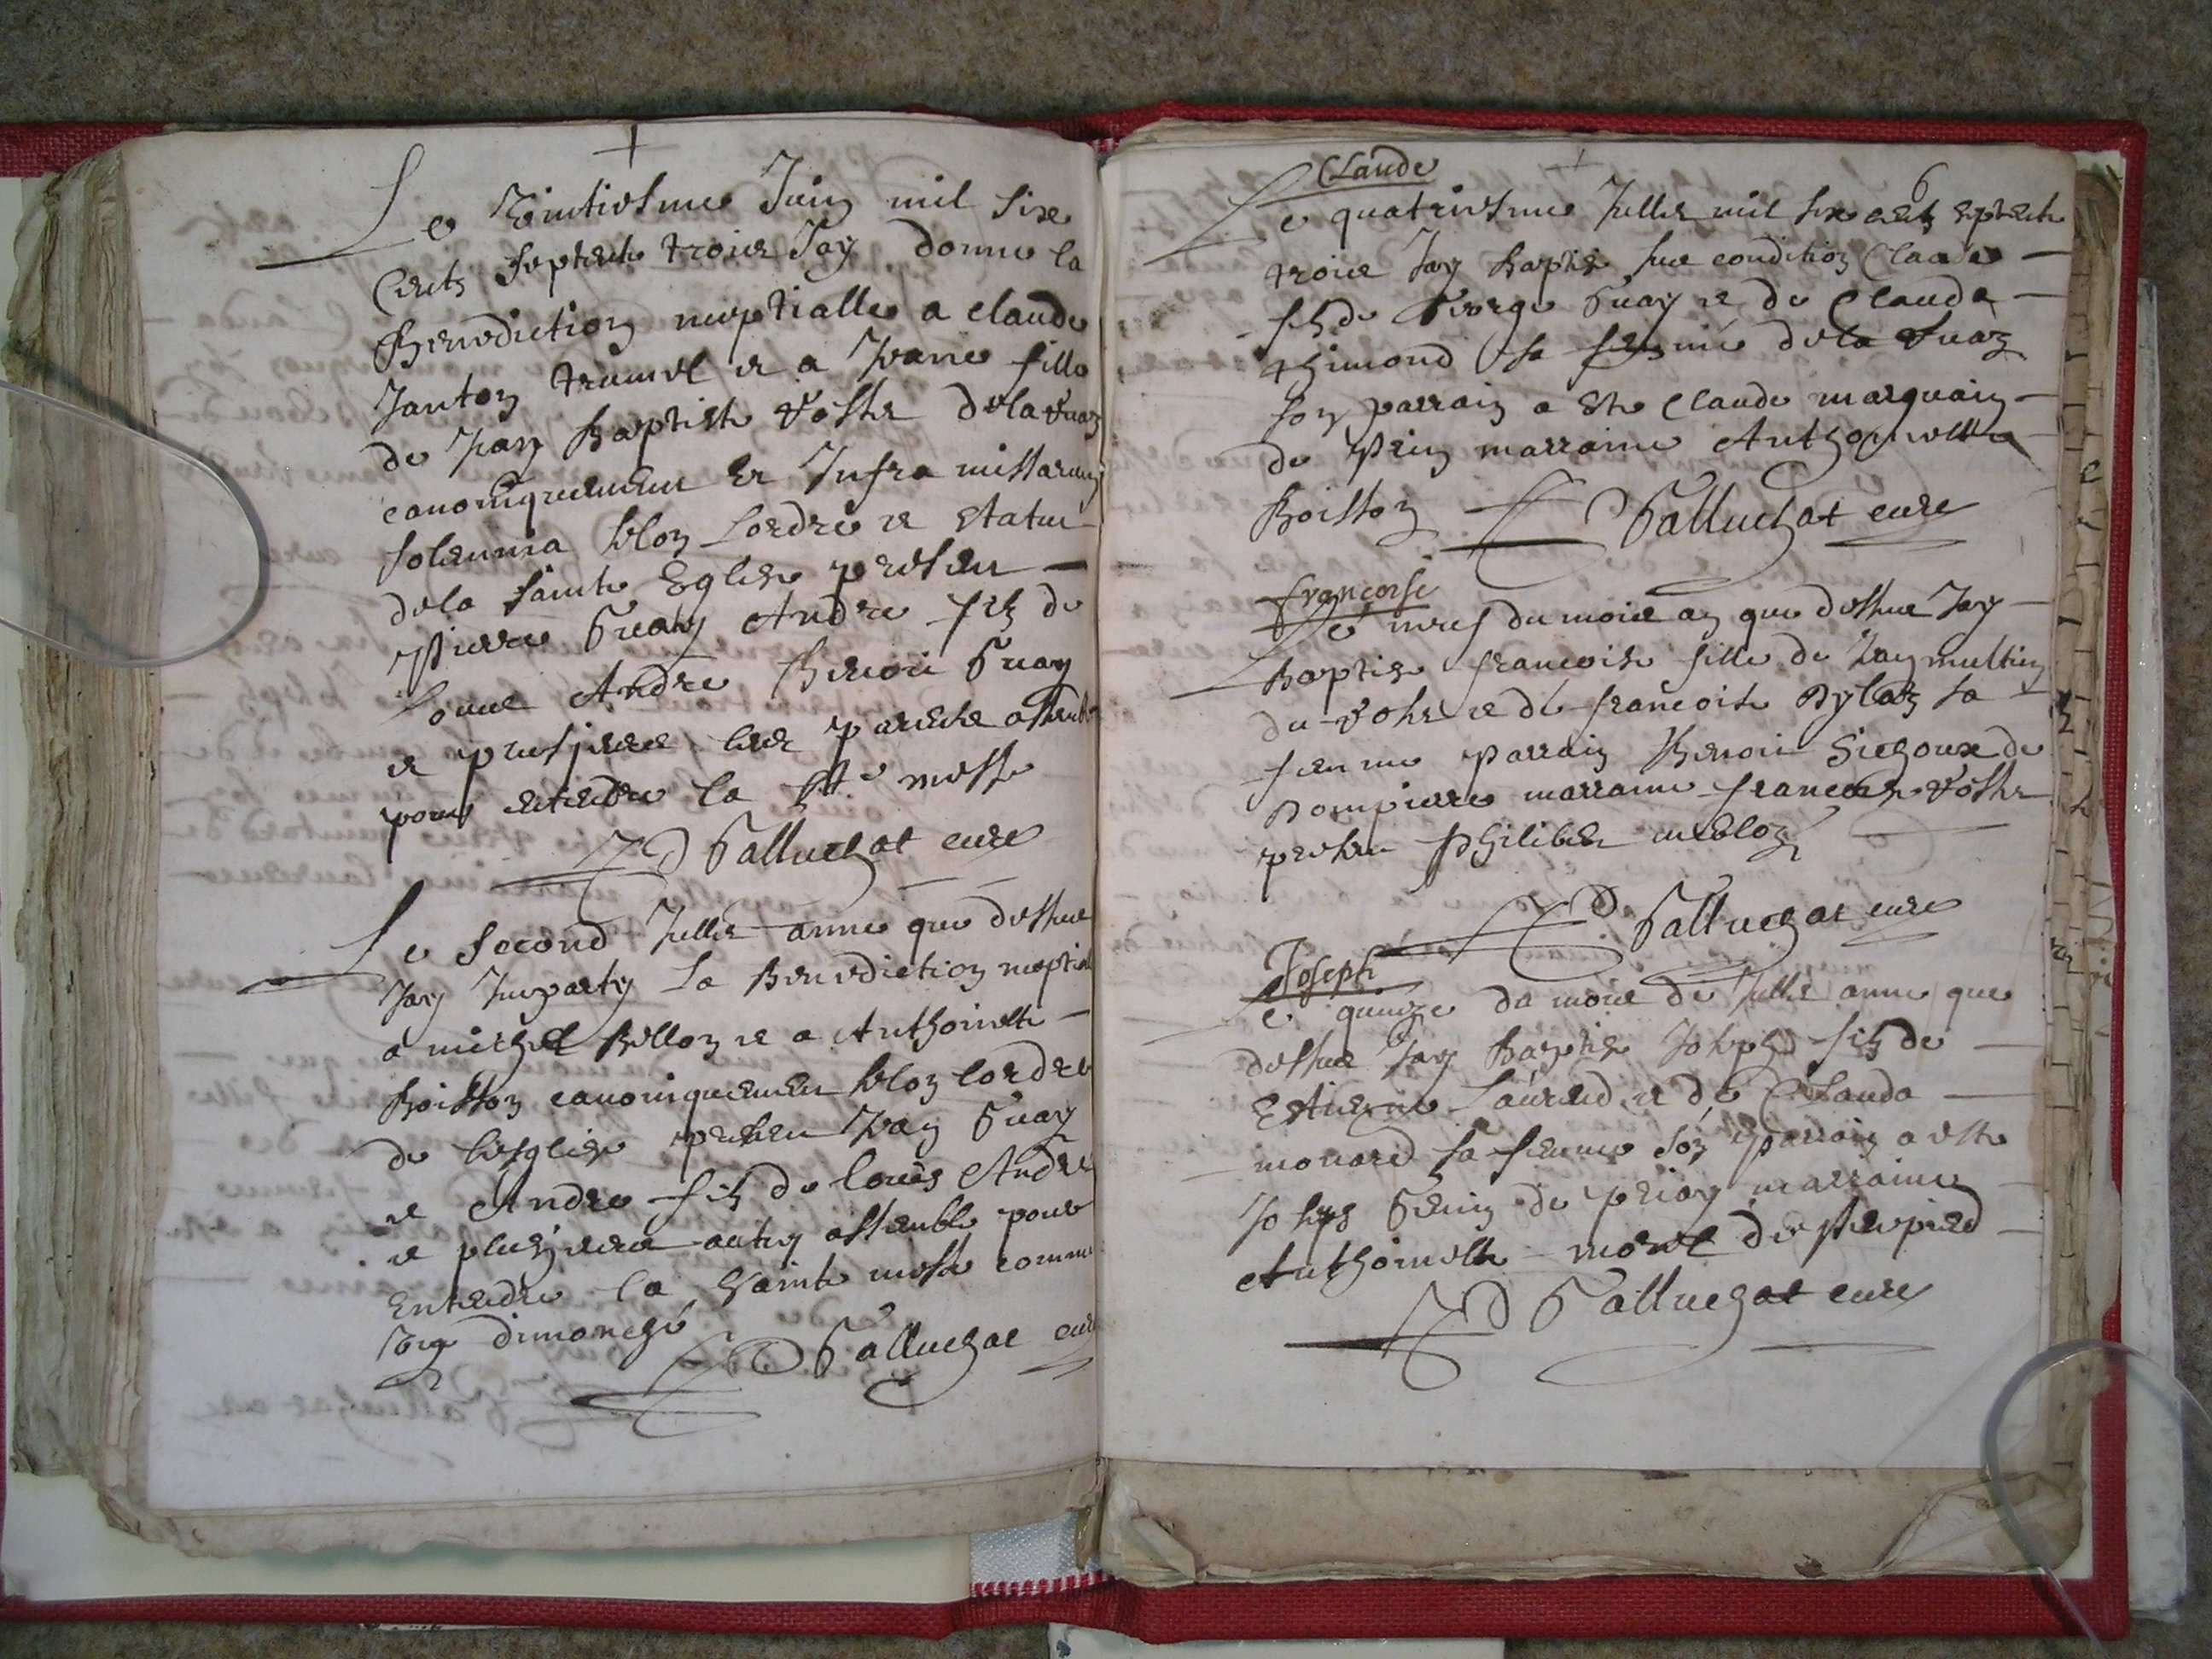 Le vintiesme Juin mil six
Cents septente trois Jay donne la
Benediction nuptialle a claude
Janton et a Jeane fille
de Jean Baptiste delavuaz
canoniquement et Infra missarum
solemnia selon Lordre et statut
dela sainte Eglise present
Pierre Andre filz de
Louis Andre Benoit
et plusieurs assemble
pour entendre la ste messe
D Galluchat cure
Le second Jullet anne que dessus
Jay Imparty La Benediction nuptial
a michel Billon et a Anthoinette
Boisson canoniquement selon lordre
de leglise present Jean Guay
et Andre filz de louis Andre
et plusieurs autres assemble pour
Entendre la Sainte messe comme
dimanche
D Galluchat cure
6
Claude
Le quatriesme Jullet mil six cents septente
trois Jay Baptise sus condition Claude
filz de George Guay et de Clauda
thimond sa femme dela vuaz
son parrain a este Claude marquain
de Prin marraine Anthoinette
Boisson D Galluchat cure
francoise
Le neuf du mois an que dessus Jay
Baptise francoise fille de Jean
du et de francoise Pylaz sa
femme parrain Benoit de
Dompierre marraine francoise
present Philibert
D Galluchat cure
Joseph
Le quinze du mois de Jullet anne que
dessus Jay Baptise Joseph filz de
Estienne Laurend et de Clauda
monard sa femme son parrain a este
Joseph de priay marraine
Anthoinette morel de
D Galluchat cure